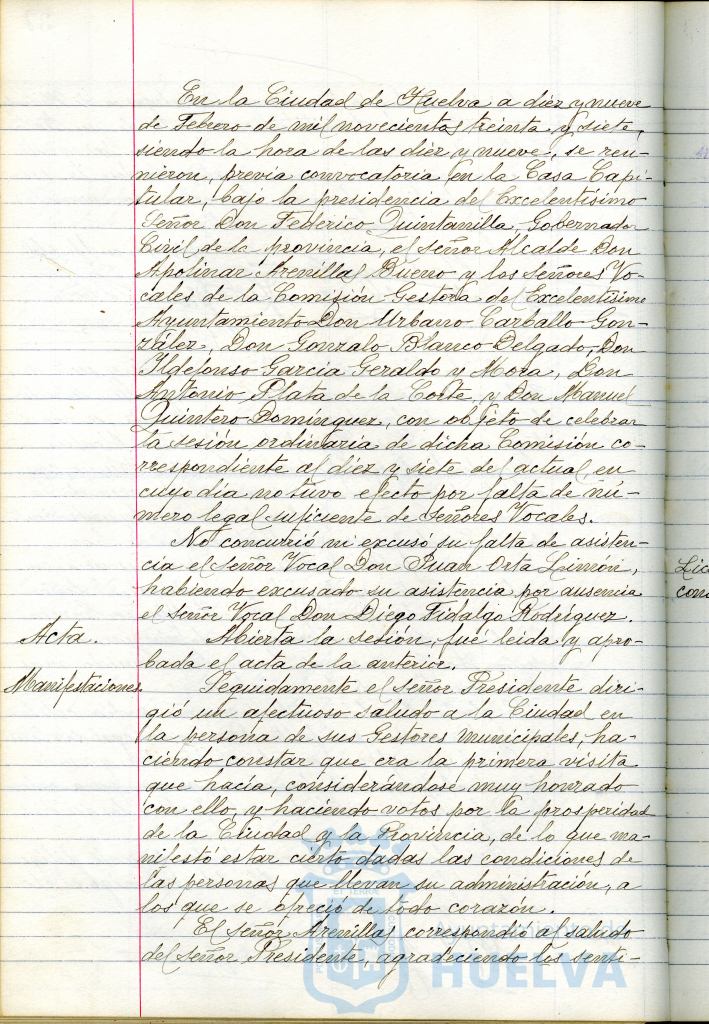 En la Ciudad de Huelva a diez y nueve
de Febrero de mil novecientos treinta y siete,
siendo la hora de las diez y nueve, se reu-
nieron, previa convocatoria en la Casa Capi-
tular, bajo la presidencia del Excelentísimo
Señor Don Federico Quintanilla, Gobernador
Civil de la provincia, el señor Alcalde Don
Apolinar Arenillas Bueno y los Señores Vo-
cales de la Comisión Gestora del Excelentísimo
Ayuntamiento Don Urbano Carballo Gon-
zález, Don Gonzalo Blanco Delgado, Don
Ildefonso García Geraldo y Mora, Don
Antonio Plata de la Corte, y Don Manuel
Quintero Domínguez, con objeto de celebrar
la sesión ordinaria de dicha Comisión co-
rrespondiente al diez y siete del actual en
cuyo día no tuvo efecto por falta de nú-
mero legal suficiente de Señores Vocales.
No concurrió ni excusó su falta de asisten-
cia el Señor Vocal Don Juan Orta Limón,
habiendo excusado su asistencia por ausencia
el Señor Vocal Don Diego Fidalgo Rodríguez.
Acta. Abierta la sesión, fué leida y apro-
bada el acta de la anterior.
Manifestaciones. Seguidamente el Señor Presidente diri-
gió un afectuoso saludo a la Ciudad en
la persona de sus Gestores municipales, ha-
ciendo constar que era la primera visita
que hacía, considerándose muy honrado
con ello, y haciendo votos por la prosperidad
de la Ciudad y la Provincia, de lo que ma-
nifestó estar cierto dadas las condiciones de
las personas que llevan su administración, a
los que se ofreció de todo corazón.
El Señor Arenillas correspondió al saludo
del Señor Presidente, agradeciendo los senti-
HUELVA
Lic
con